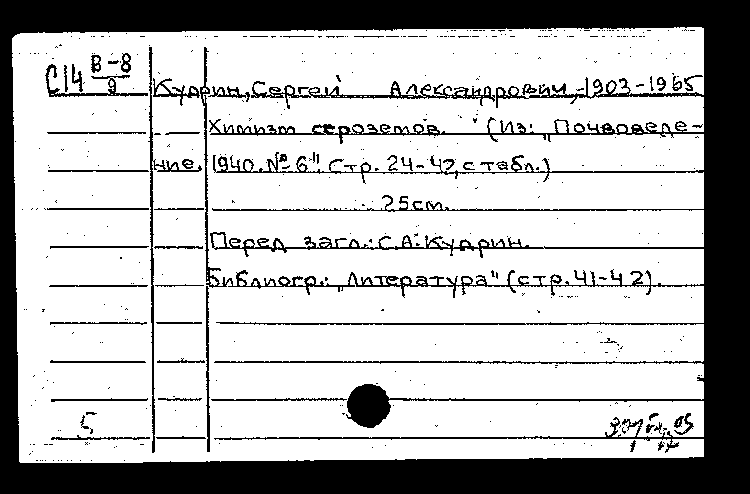 С14 В-8/9
Кудрин, Сергей Александрович,-1903-1965
Химизм сероземов. (Из: „Почвоведе-
ние, 1940. № 6". Стр. 24-42, с табл.)
25см.
Перед загл.: С.А. Кудрин.
Библиогр.: „Литература" (стр. 41-42).
5